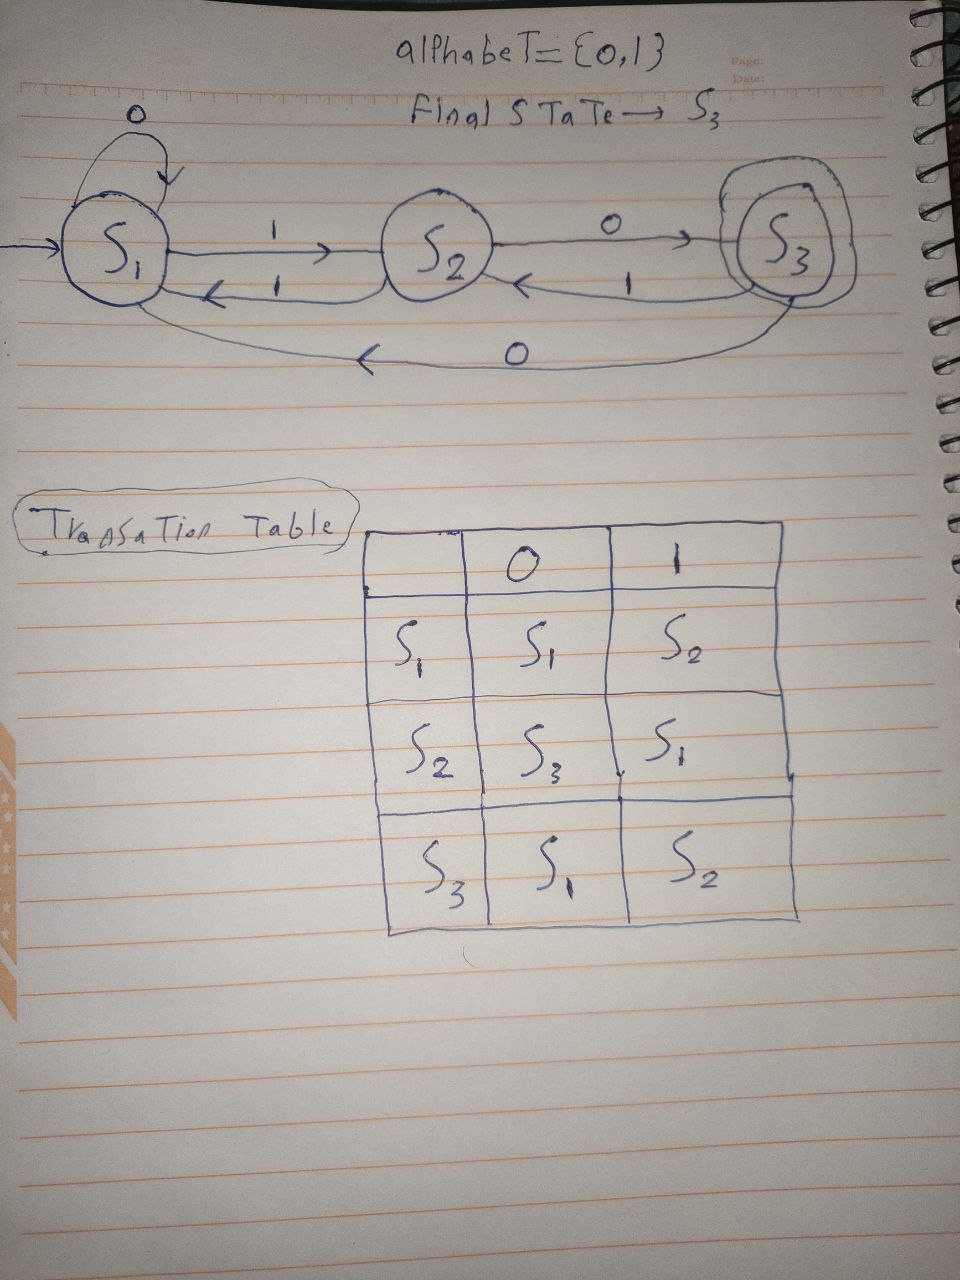 Page:
Date:
alphabeT = {0,1}
Final STaTe → S₃
0
S₁ 1 S₂ 0 S₃
1 1
0
TransaTion Table
0 1
S₁ S₁ S₂
S₂ S₃ S₁
S₃ S₁ S₂